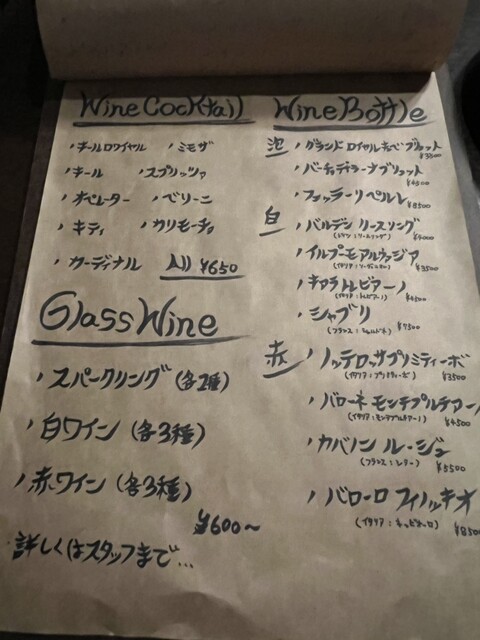 Wine Cocktail
・キールロワイヤル ・ミモザ
・キール ・スプリッツァ
・オペレーター ・ベリーニ
・キティ ・カリモーチョ
・カーディナル All ¥650
Glass Wine
・スパークリング (各2種)
・白ワイン (各3種)
・赤ワイン (各3種)
¥600〜
詳しくはスタッフまで...
Wine Bottle
泡 ・グランド ロイヤル ブリュット
¥3300
ブリュット
¥4500
・フェッラーリ ペルレ
¥8500
白 ・バルデン リースリング
¥4000
・イルプーモ
¥3500
・キャラ トレビアーノ
(イタリア:トレビアーノ) ¥4500
・シャブリ
(フランス:シャルドネ) ¥7500
赤 ・ノッテロッサ プリミティーボ
(イタリア:プリミティーボ) ¥3500
・バローネ モンテプルチアーノ
(イタリア:モンテプルチアーノ) ¥4500
・カバノン ルージュ
¥5500
・バローロ
¥8500